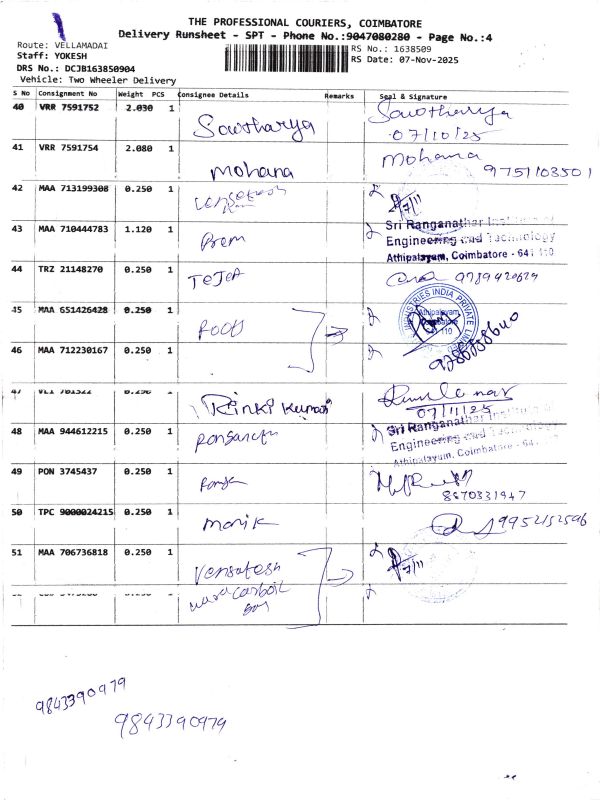 THE PROFESSIONAL COURIERS, COIMBATORE
Delivery Runsheet - SPT - Phone No.:9047080280 - Page No.:4
Route: VELLAMADAI
Staff: YOKESH
DRS No.: DCJB163850904
Vehicle: Two Wheeler Delivery
RS No.: 1638509
RS Date: 07-Nov-2025
S No Consignment No Weight PCS Consignee Details Remarks Seal & Signature
40 VRR 7591752 2.030 1 Sowtharya Sowtharya
07/10/25
41 VRR 7591754 2.080 1 Mohana Mohana
9751103501
42 MAA 713199308 0.250 1
7/11
43 MAA 710444783 1.120 1 Prem
Sri Ranganathar Institute of
Engineering and Technology
Athipalayam, Coimbatore - 641 110
44 TRZ 21148270 0.250 1 TeJeA 9789420629
45 MAA 651426428 0.250 1
INDUSTRIES INDIA PRIVATE LIMITED
Athipalayam
46 MAA 712230167 0.250 1
47 0.250 1 Rinki Kumari
07/11/25
48 MAA 944612215 0.250 1
Sri Ranganathar Institute of
Engineering and Technology
Athipalayam, Coimbatore - 641
49 PON 3745437 0.250 1
8870331947
50 TPC 9000024215 0.250 1 Monik 9952152596
51 MAA 706736818 0.250 1 Vensatesh
7/11
9843390979
9843390979